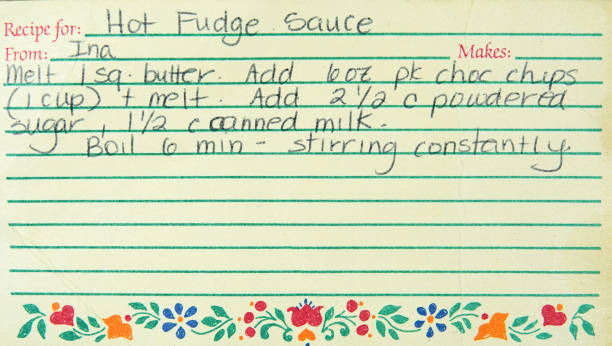 Recipe for: Hot Fudge Sauce
From: Ina Makes:
Melt 1 sq. butter. Add 6 oz pk choc chips
(1 cup) + melt. Add 2 1/2 c powdered
sugar, 1 1/2 c canned milk.
Boil 6 min - stirring constantly.